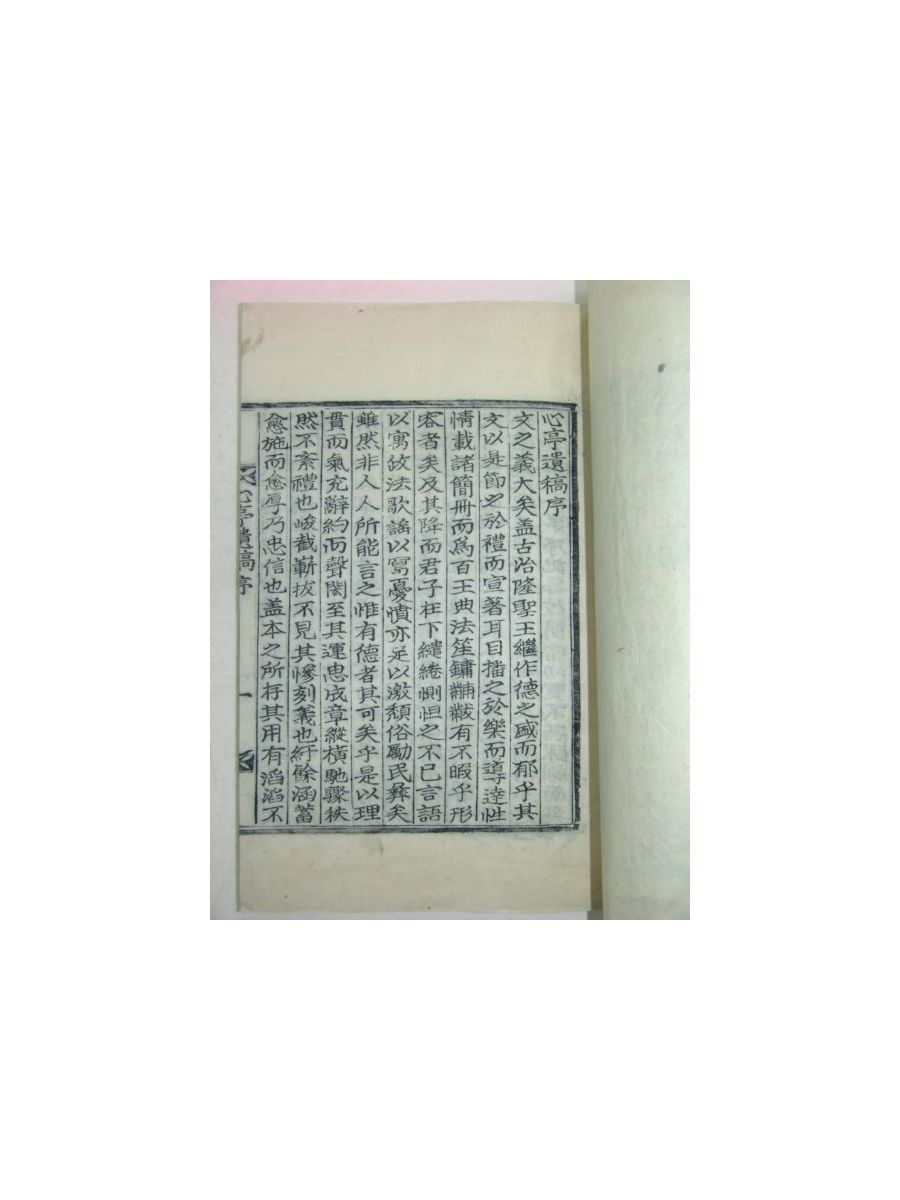 心亭遺稿序
文之義大矣盖古治隆聖王繼作德之盛而郁乎其
文以是節之於禮而宣著耳目播之於樂而導達性
情載諸簡冊而爲百王典法笙鏞黼黻有不暇乎形
容者矣及其降而君子在下繾綣惻怛之不已言語
以寓故法歌謠以寫憂憤亦足以激頹俗勵民彝矣
雖然非人人所能言之惟有德者其可矣乎是以理
貫而氣充辭約而聲閎至其運思成章縱橫馳驟秩
然不紊禮也峻截嶄拔不見其慘刻義也紆餘涵蓄
愈施而愈厚乃忠信也盖本之所存其用有滔滔不
心亭遺稿序
一